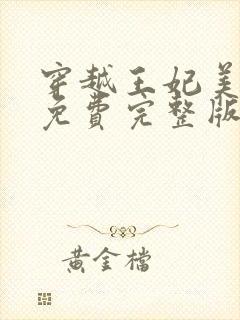 穿越王妃美
免費完整版
黃金檔